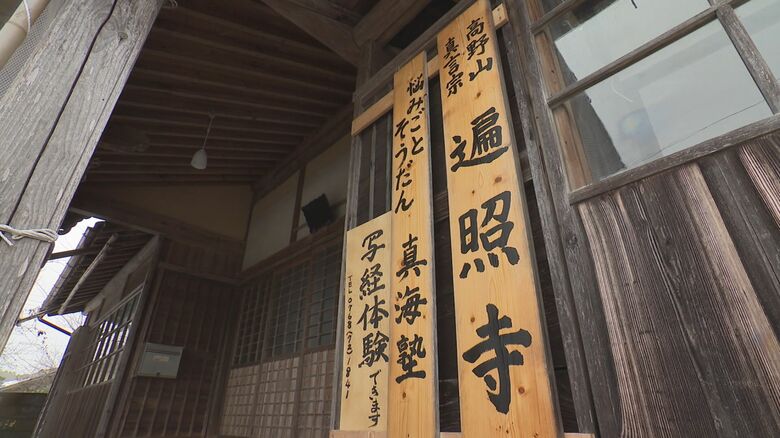 高野山
真言宗
遍照寺
悩みごと
そうだん
真海塾
写経体験できます